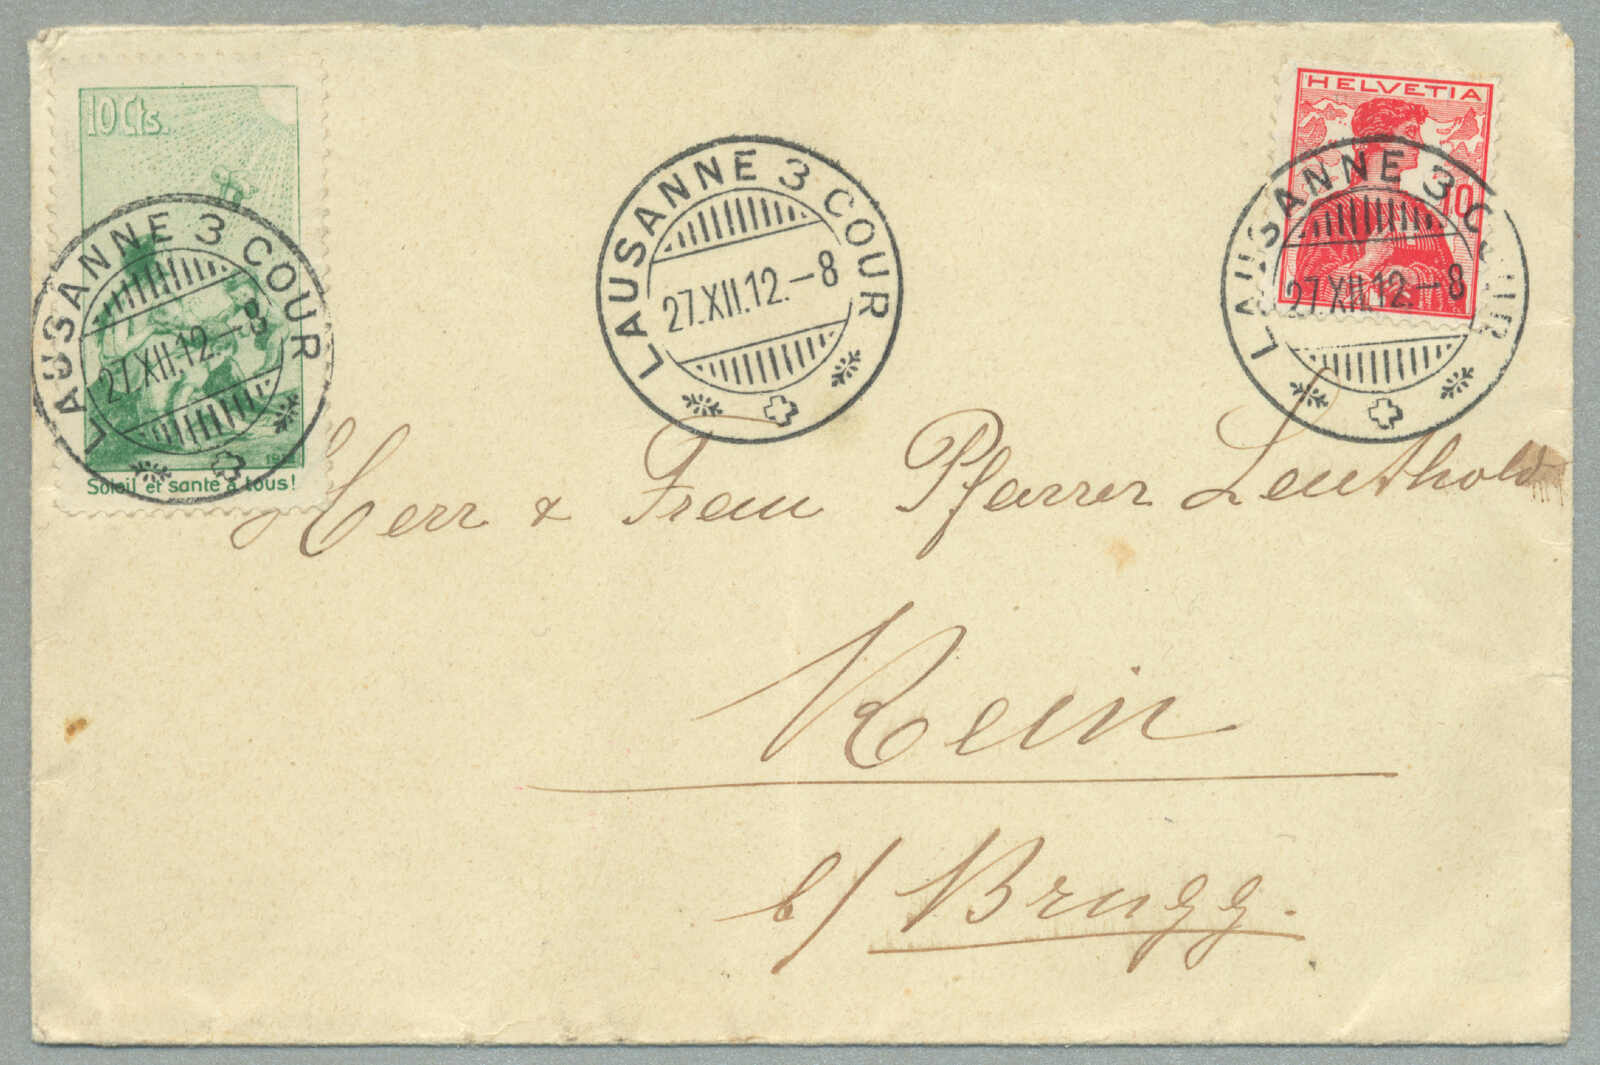 10 Cts.
LAUSANNE 3 COUR
27.XII.12.–8
Soleil et santé à tous!
LAUSANNE 3 COUR
27.XII.12.–8
HELVETIA
10
LAUSANNE 3 COUR
27.XII.12.–8
Herr & Frau Pfarrer Leuthold
Rein
b/ Brugg.